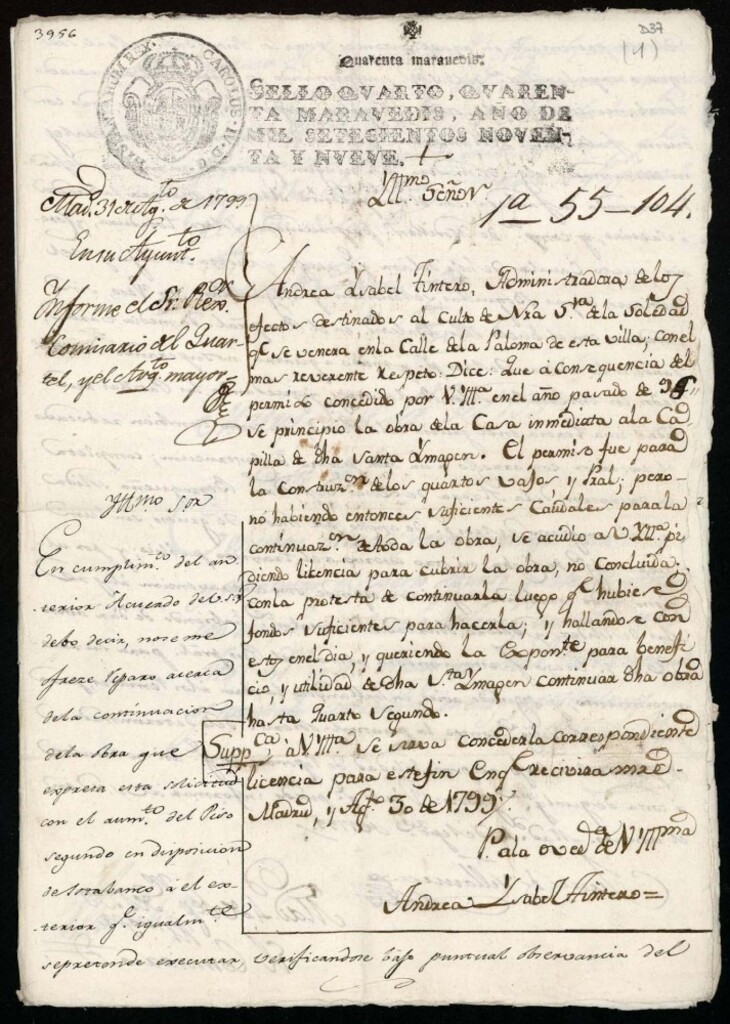 3956
D37
(1)
Quarenta maravedis.
SELLO QVARTO, QVAREN-
TA MARAVEDIS, AÑO DE
MIL SETECIENTOS NOVEN-
TA Y NVEVE.
HISPANIARUM REX CAROLUS IV D G
Yllmo. Señor.
1a 55-104.
Mad. 31 de Agto. de 1799
En su Ayuntto.
Ynforme el Sr. Rexor.
Comisario del Quar-
tel, y el Argto. mayor
Andrea Ysabel Tintero, Administradora de los
efectos destinados al Culto de Nra Sra. de la Soledad
qe. se venera en la Calle de la Paloma de esta villa; con el
mas reverente respeto: Dice: Que à consequencia del
permiso concedido por V.Illa. en el año pasado de
se principio la obra de la Casa inmediata ala Ca-
pilla de dha Santa Ymagen. El permiso fue para
la Construzn. de los quartos vajos y Pral; pero
nó habiendo entonces suficientes Caudales para la
continuazn. de toda la obra, se acudio a V.Illa. pi-
diendo licencia para cubrir la obra, no concluida.
con la protesta de continuarla luego qe. hubiese
fondos suficientes para hacerla; y hallandose con
estos en el dia, y queriendo la Exponte. para benefi-
cio, y utilidad de dha Sta. Ymagen continuar dha obra
hasta Quarto Segundo.
Suppca. à V.Illa. se sirva concederla correspondiente
licencia para este fin En qe. recivira mrd.
Madrid, y Agto. 30 de 1799.
P. ala oved. de V.Illma
Andrea Ysabel Tintero =
Yllmo Sor
En cumplimto. del an-
terior Acuerdo de V.S.Y.
debo decir, no se me
ofreze reparo acerca
de la continuacion
de la obra que
expresa esta solicitud
con el aumto. del Piso
segundo en disposicion
de sotabanco à el ex-
terior qe. igualmte.
se pretende executar, verificandose bajo puntual observancia del